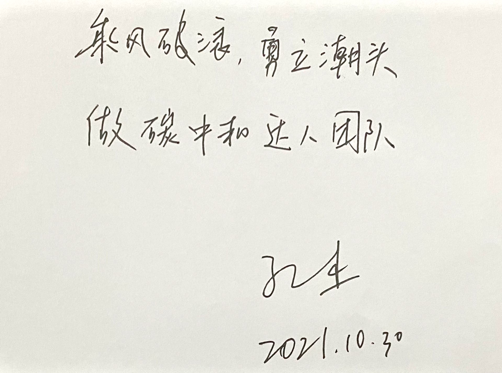 乘风破浪，勇立潮头
做碳中和达人团队
2021.10.30